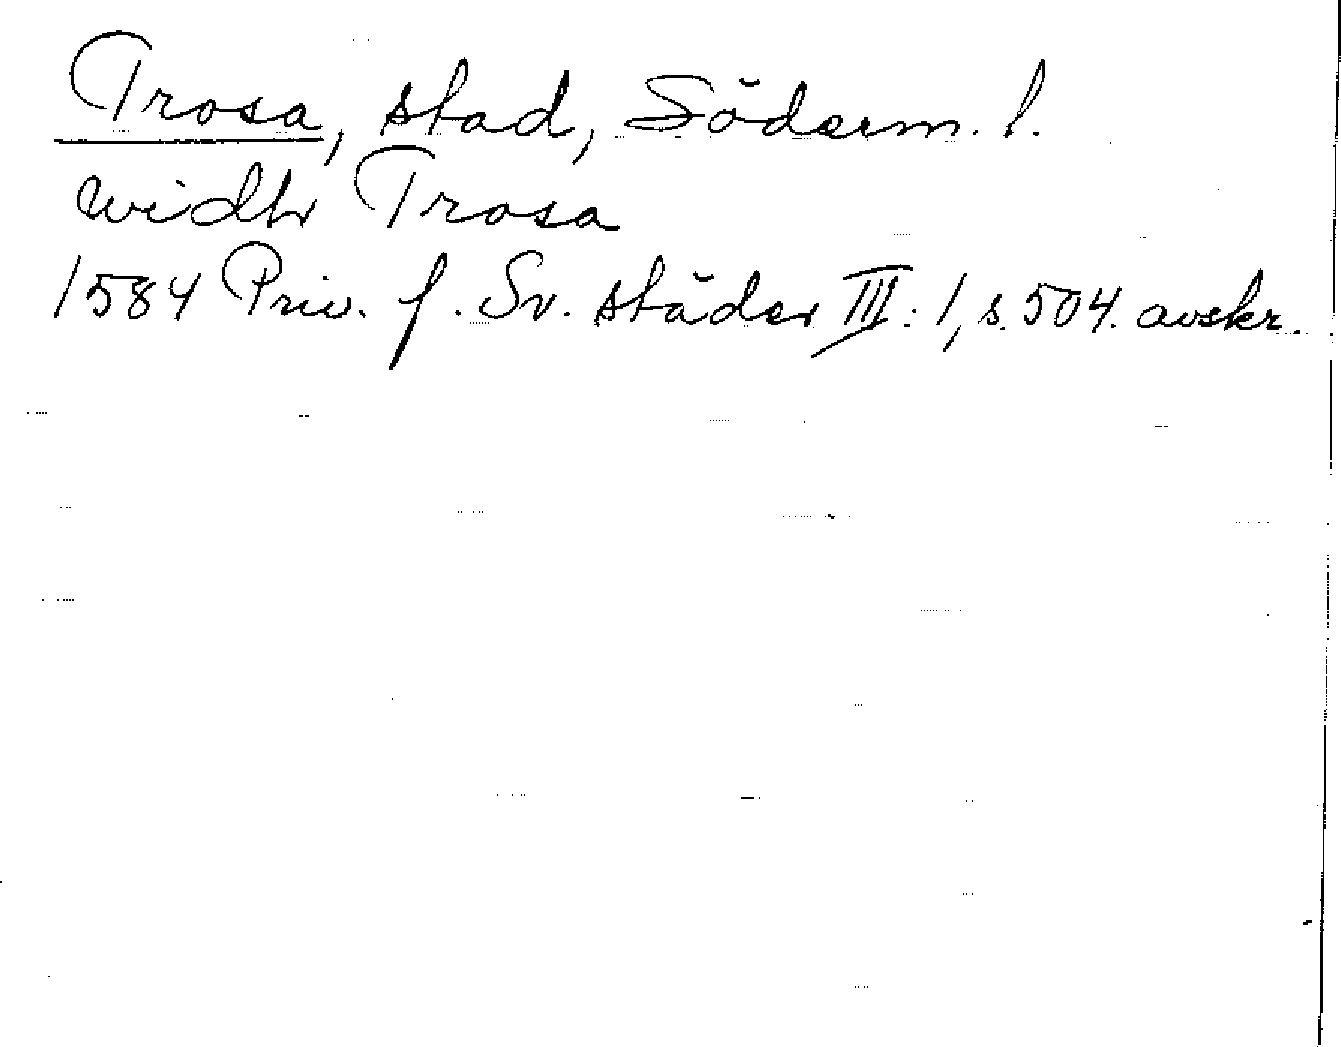 Trosa, stad, Söderm. l.
widh Trosa
1584 Priv. f. Sv. städer III: 1, s. 504. avskr.